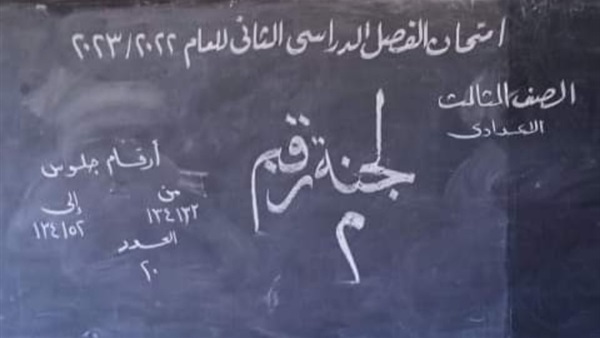 امتحان الفصل الدراسى الثانى للعام ٢٠٢٢/٢٠٢٣
الصف الثالث
الاعدادى
لجنة رقم
٢
أرقام جلوس
من إلى
١٣٤١٣٣ ١٣٤١٥٢
العدد
٢٠